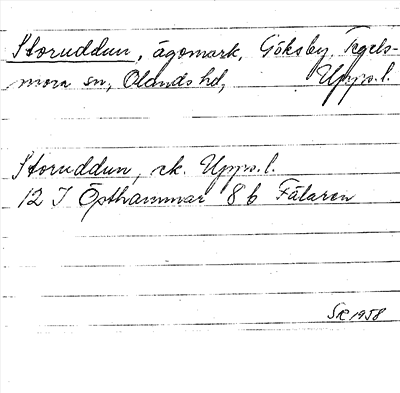 Storuddun, ägomark, Göksby, Tegels-
mora sn, Olands hd, Upps.l.
Storuddun, ek. Upps.l.
12 I Östhammar 8 b Fälaren
SR 1958